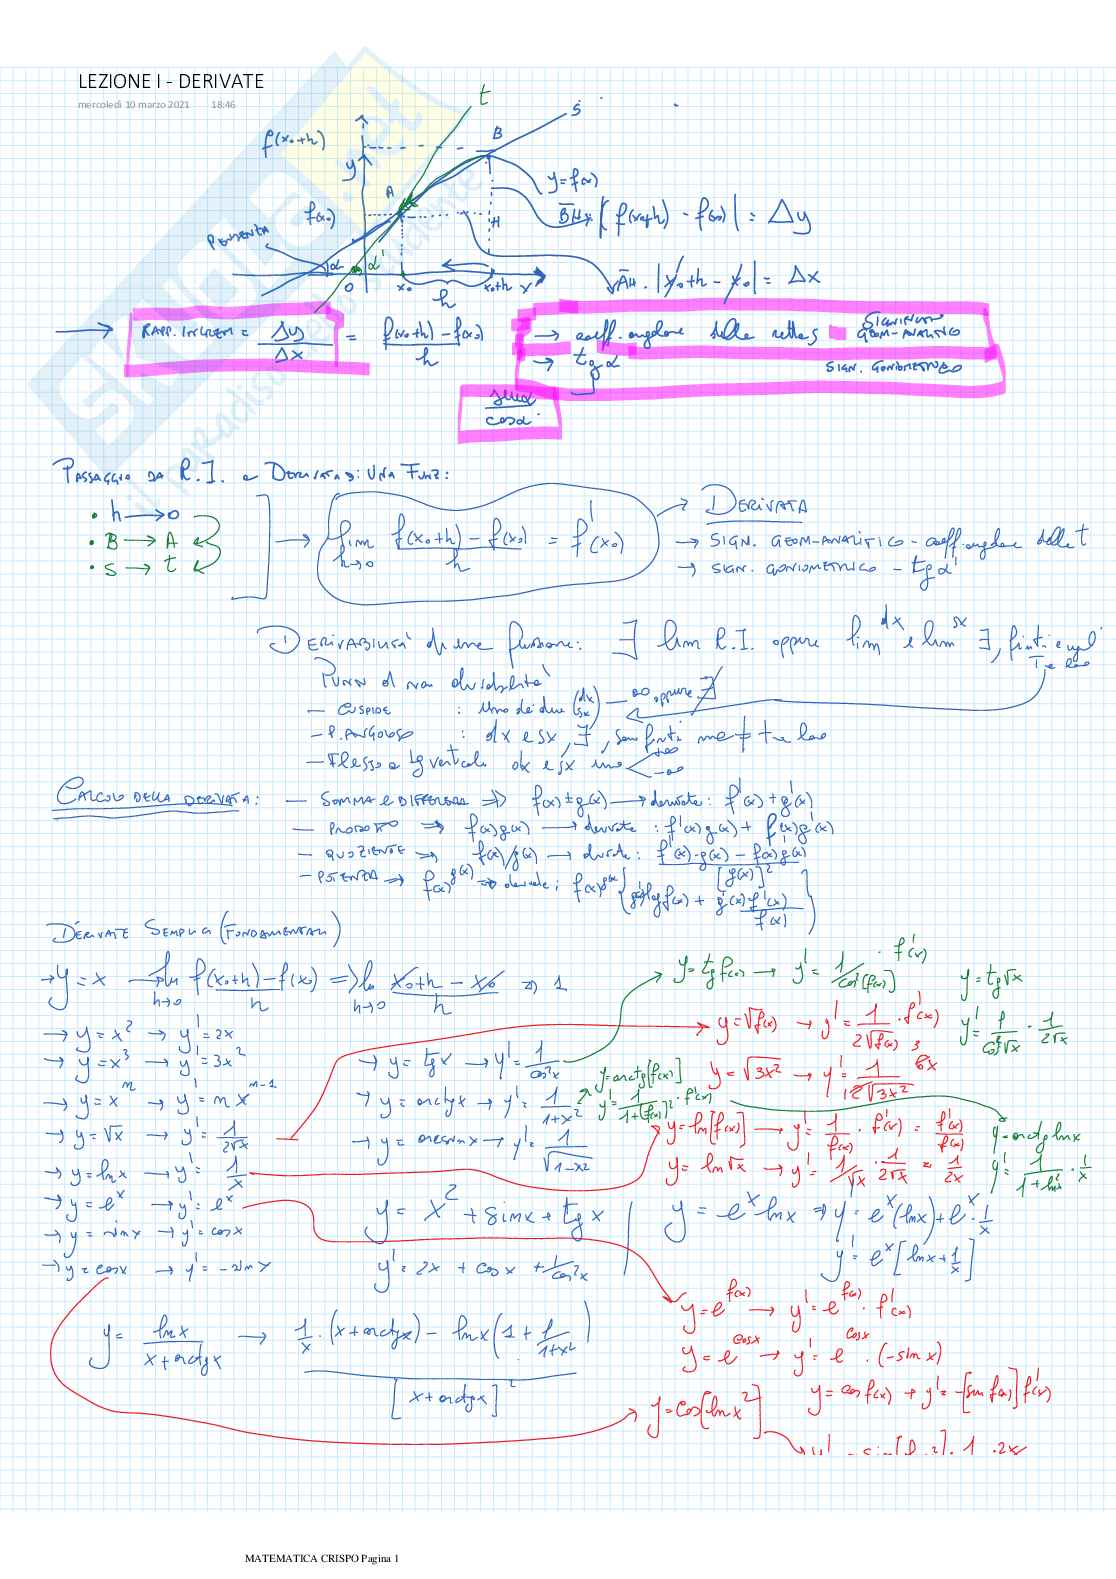 LEZIONE I - DERIVATE
mercoledì 10 marzo 2021 18:46
t
s
B
f(x₀+h)
y
y=f(x)
A
f(x₀)
H
B̅H̅ |f(x₀+h) - f(x₀)| = Δy
PENDENZA
α α'
A̅H̅ . |x₀+h - x₀| = Δx
O x₀ h x₀+h x
RAPP. INCREM = Δy/Δx = f(x₀+h) - f(x₀)/h
→ coeff. angolare della retta s SIGNIFICATO GEOM-ANALITICO
→ tg α SIGN. GONIOMETRICO
senα/cosα
PASSAGGIO DA R.I. a DERIVATA DI UNA FUNZ:
• h → 0
• B → A
• s → t
lim h→0 f(x₀+h) - f(x₀)/h = f'(x₀)
→ DERIVATA
→ SIGN. GEOM-ANALITICO - coeff. angolare della t
→ SIGN. GONIOMETRICO - tg α'
DERIVABILITÀ di una funzione: ∃ lim R.I. oppure lim dx e lim sx ∃, finiti e ugl Tra loro
Punti di non derivabilità
- CUSPIDE : Uno dei due (dx sx) — ∞ oppure ∄
- P. ANGOLOSO : dx e sx, ∃, son finiti ma ≠ tra loro
- Flesso a tg verticale dx e sx uno +∞ -∞
CALCOLO DELLA DERIVATA: - SOMMA E DIFFERENZA ⇒ f(x) ± g(x) → derivate: f'(x) + g'(x)
- PRODOTTO ⇒ f(x)g(x) → derivate: f'(x)g(x) + f(x)g'(x)
- QUOZIENTE ⇒ f(x)/g(x) → derivate: f'(x)·g(x) - f(x)g'(x)/[g(x)]²
- POTENZA ⇒ f(x)^g(x) ⇒ derivate: f(x)^g(x) {g'(x) log f(x) + g(x) f'(x)/f(x)}
DERIVATE SEMPLICI (FONDAMENTALI)
→ y = x → lim h→0 f(x₀+h) - f(x₀)/h ⇒ lim h→0 x₀+h - x₀/h ⇒ 1
→ y = x² → y' = 2x
→ y = x³ → y' = 3x²
→ y = xⁿ → y' = n xⁿ⁻¹
→ y = √x → y' = 1/2√x
→ y = lnx → y' = 1/x
→ y = eˣ → y' = eˣ
→ y = sinx → y' = cosx
→ y = cosx → y' = -sinx
→ y = tgx → y' = 1/cos²x
→ y = arctgx → y' = 1/1+x²
→ y = arcsinx → y' = 1/√1-x²
y = tg f(x) → y' = 1/cos²[f(x)] · f'(x)
y = tg√x
y' = 1/cos²√x · 1/2√x
y = √f(x) → y' = 1/2√f(x) · f'(x)
y = √3x² → y' = 1/2√3x² 6x
y = arctg[f(x)]
y' = 1/1+[f(x)]² · f'(x)
y = ln[f(x)] → y' = 1/f(x) · f'(x) = f'(x)/f(x)
y = ln√x → y' = 1/√x · 1/2√x = 1/2x
y = arctg lnx
y' = 1/1+ln²x · 1/x
y = x² + sinx + tgx
y' = 2x + cosx + 1/cos²x
y = eˣ lnx ⇒ y' = eˣ(lnx) + eˣ · 1/x
y' = eˣ[lnx + 1/x]
y = lnx/x + arctgx → 1/x · (x + arctgx) - lnx(1 + 1/1+x²)/[x + arctgx]²
y = e^f(x) → y' = e^f(x) · f'(x)
y = e^cosx → y' = e^cosx · (-sinx)
y = cos f(x) → y' = -[sin f(x)] f'(x)
y = cos[lnx²]
MATEMATICA CRISPO Pagina 1